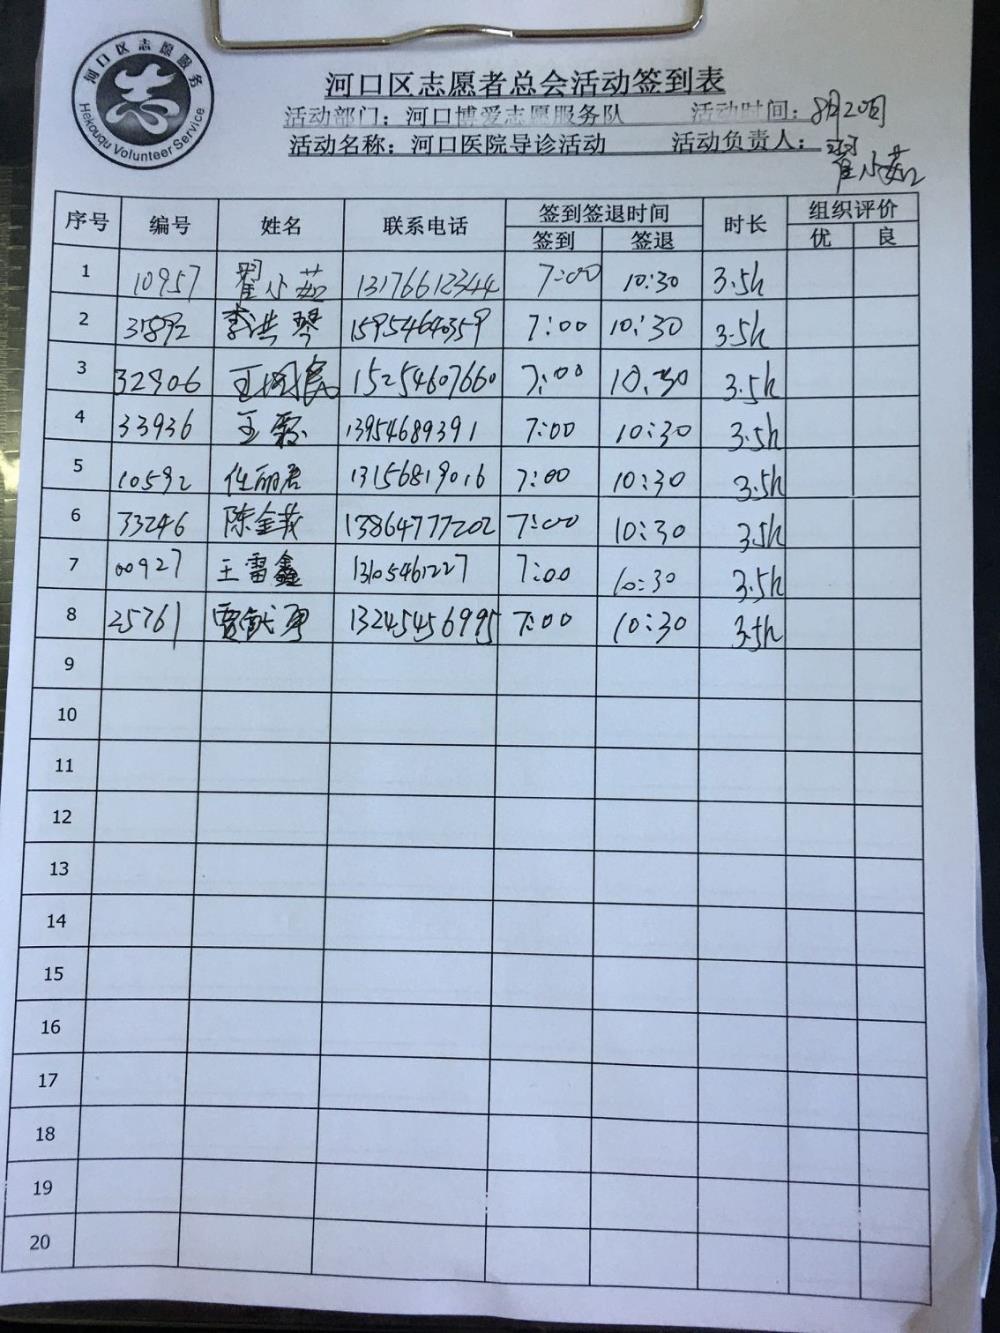 河口区志愿服务
Hekouqu Volunteer Service
河口区志愿者总会活动签到表
活动部门：河口博爱志愿服务队 活动时间：8月20日
活动名称：河口医院导诊活动 活动负责人：翟小茹
序号 编号 姓名 联系电话 签到签退时间 时长 组织评价
签到 签退 优 良
1 10957 翟小茹 13176612344 7:00 10:30 3.5h
2 31892 李洪琴 15954640359 7:00 10:30 3.5h
3 32906 王国 15254607660 7:00 10:30 3.5h
4 33936 王 13954689391 7:00 10:30 3.5h
5 10592 任丽君 13156819016 7:00 10:30 3.5h
6 33246 陈金 13864777202 7:00 10:30 3.5h
7 00927 王雷鑫 13105461227 7:00 10:30 3.5h
8 25761 13245456995 7:00 10:30 3.5h
9
10
11
12
13
14
15
16
17
18
19
20